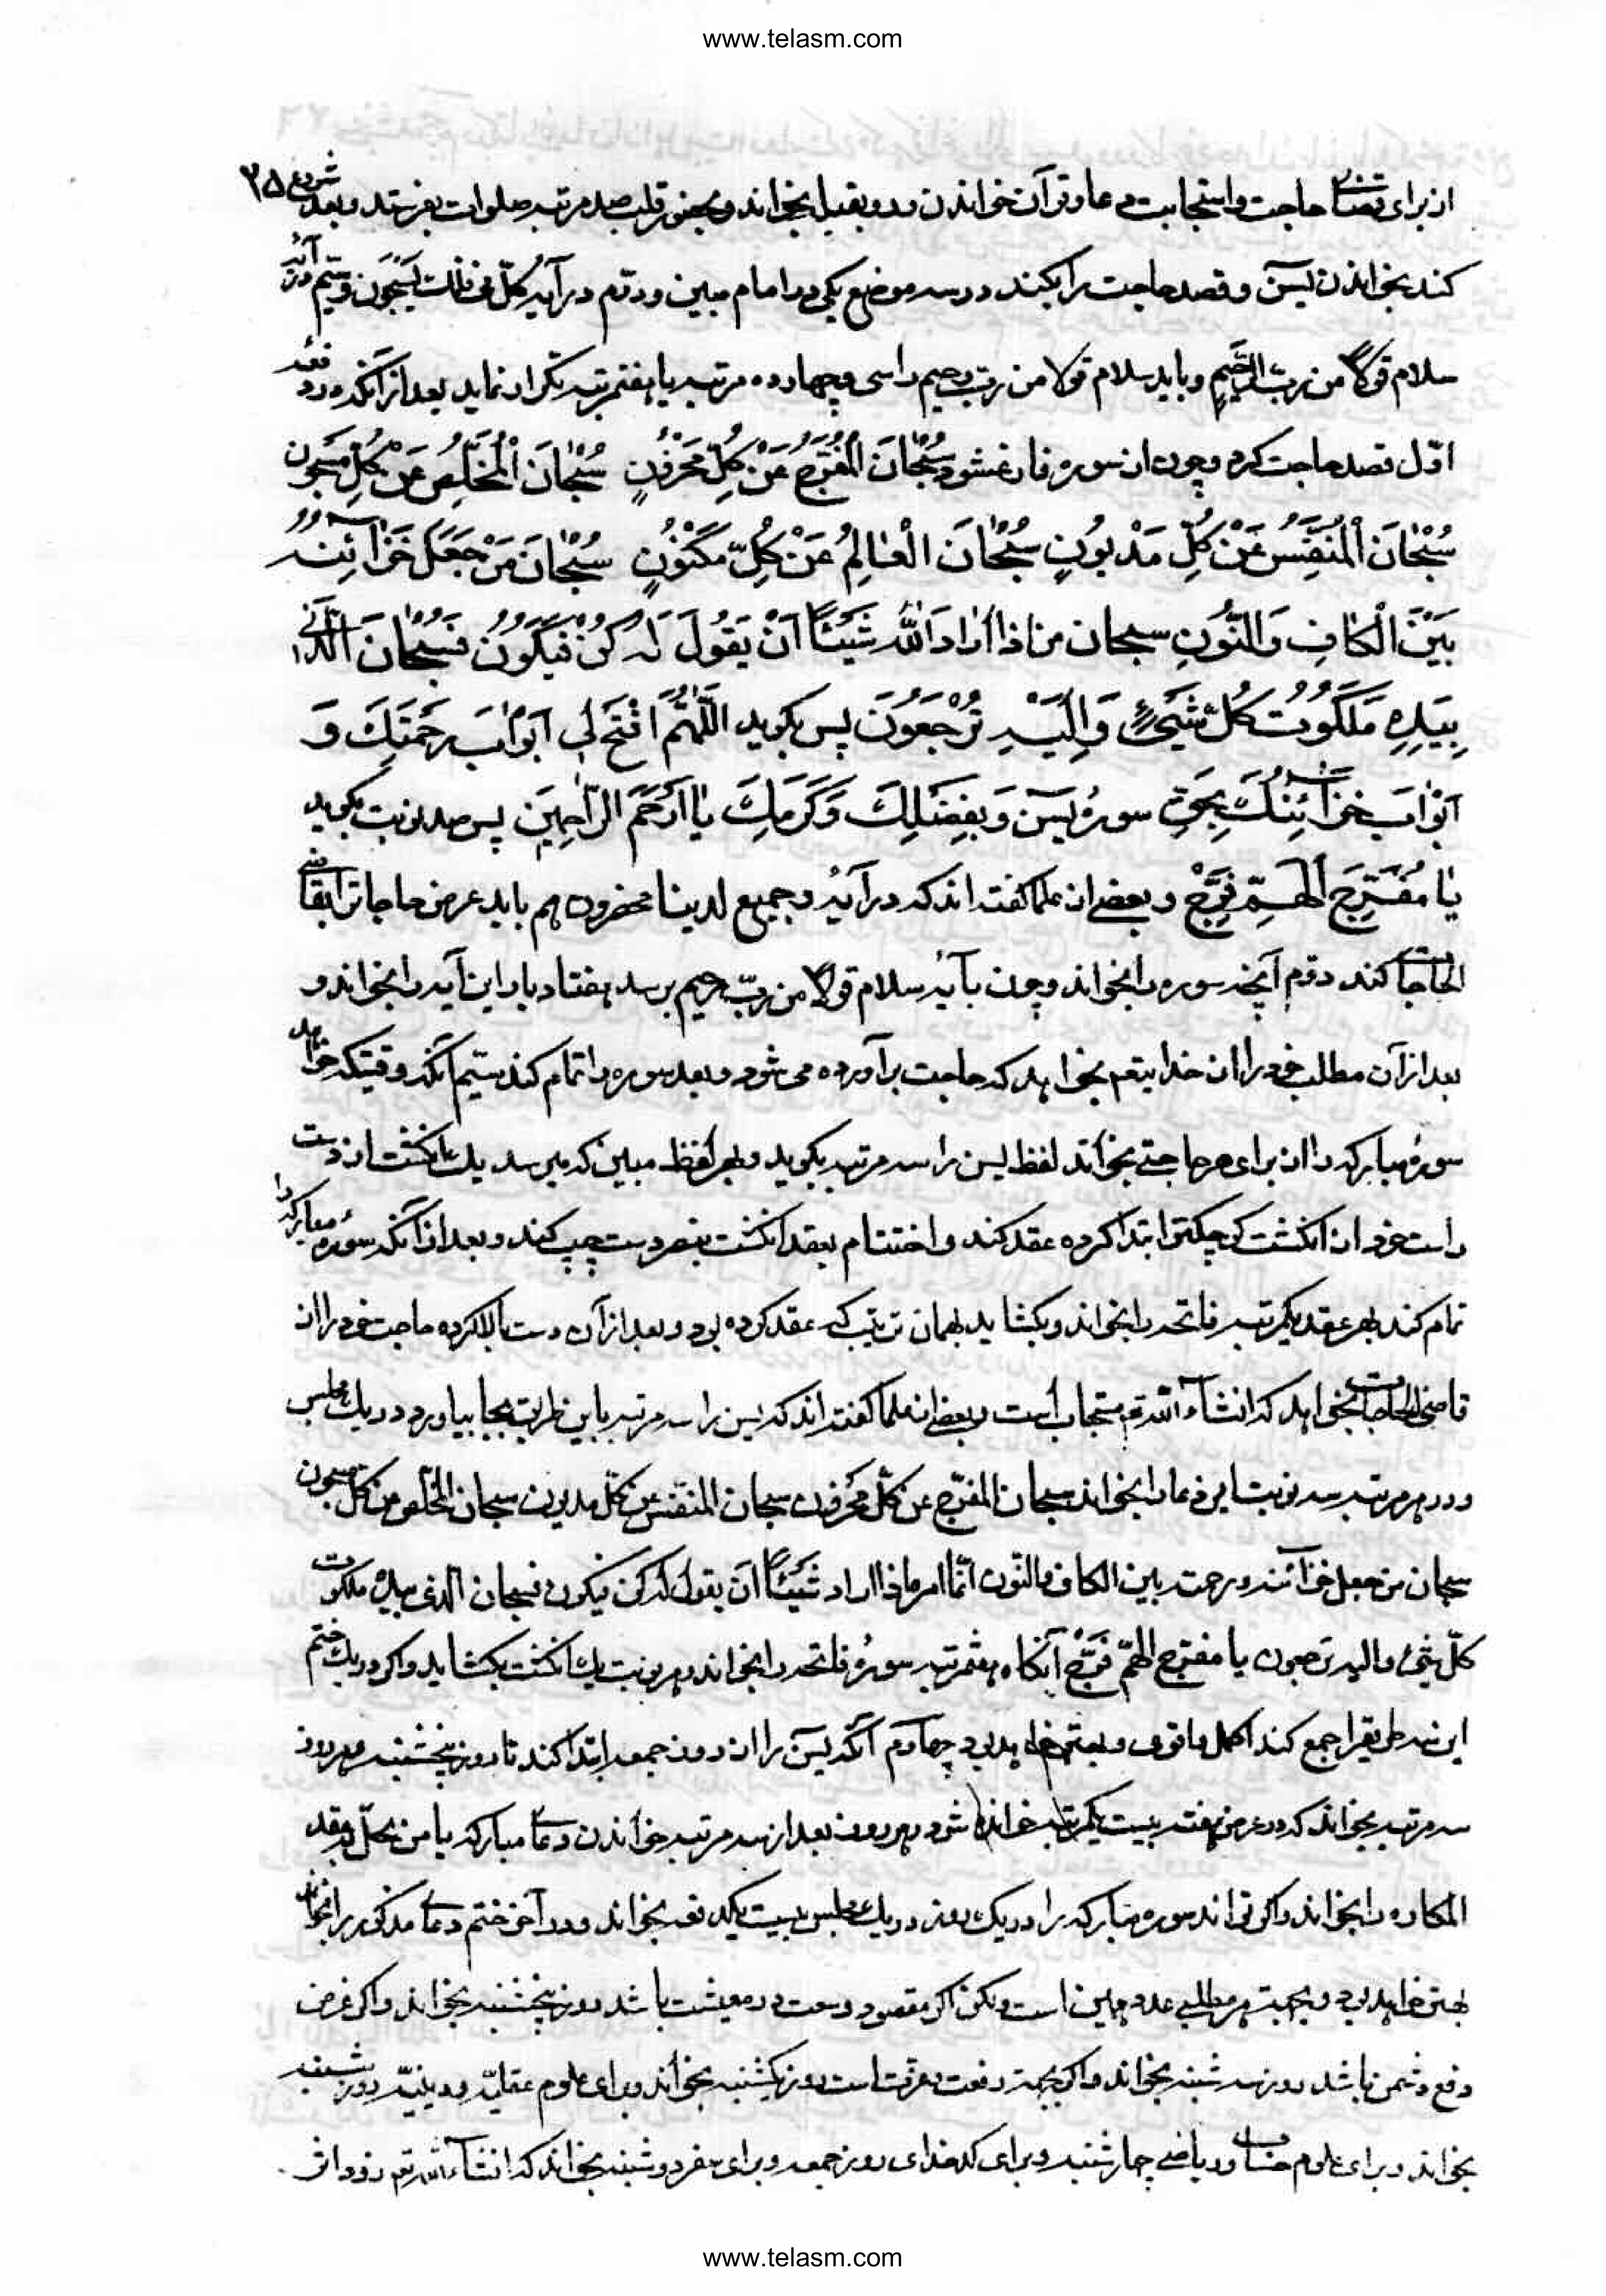 www.telasm.com
۳۵
از برای قضا حاجت و استجابت دعا و قرآن خواندن رو بقبله بخواند و بحضور قلب صد مرتبه صلوات بفرستد و بعد شروع
کند بخواندن یسن و قصد حاجت را بکند در سه موضع یکی در امام مبین و دوم در آیه کل فی فلک یسبحون و سیم در آیه
سلام قولا من رب الرحیم و باید سلام قولا من رب رحیم را سی و چهارده مرتبه یا هفتمرتبه تکرار نماید بعد از آنکه در دفعه
اول قصد حاجت کرد و چون از سوره فارغ شود سُبْحانَ الْمُفَرِّجُ عَنْ كُلِّ مَحْزُونٍ سُبْحانَ الْمُخَلِّصُ عَنْ كُلِّ مَسْجُونٍ
سُبْحانَ الْمُنَفِّسُ عَنْ كُلِّ مَدْيُونٍ سُبْحانَ الْعالِمُ عَنْ كُلِّ مَكْنُونٍ سُبْحانَ مَنْ جَعَلَ خَزآئِنَهُ
بَيْنَ الْكافِ وَالنُّونِ سبحان من اذا اَرادَ اللهُ شَيْئاً اَنْ يَقُولَ لَهُ كُنْ فَيَكُونُ فَسُبْحانَ الَّذي
بِيَدِهِ مَلَكُوتُ كُلِّ شَيْءٍ وَاِلَيْهِ تُرْجَعُونَ پس بکوید اَللّهُمَّ افْتَحْ لي اَبْوابَ رَحْمَتِكَ وَ
اَبْوابَ خَزآئِنِكَ بِحَقِّ سورهٔ يسن وَبِفَضْلِكَ وَكَرَمِكَ يا اَرْحَمَ الرّاحِمينَ پس صد نوبت بکوید
يا مُفَرِّجَ الْهَمِّ فَرِّجْ و بعضی از علما کفته اند که در آیهٔ و جمیع لدینا محضرون هم باید عرض حاجات را بقاضی
الحاجات کند دوم آنچه سوره را بخواند و چون بآیهٔ سلام قولا من رب رحیم برسد هفتاد بار این آیه را بخواند و
بعد از آن مطلب خود را از خدایتعم بخواهد که حاجت برآورده می شود و بعد سوره را تمام کند سیم آنکه وقتیکه خواهد
سورهٔ مبارکه را از برای هر حاجتی بخواند لفظ یسن را سه مرتبه بکوید و بهر لفظ مبین که میرسد یک انکشت از دست
راست خود از انکشت کوچکتر ابتدا کرده عقد کند و اختتام بعقد انکشت بنصر دست چپ کند و بعد از آنکه سوره مبارکه را
تمام کند بهر عقد یکمرتبه فاتحه را بخواند و بکشاید بهمان ترتیب که عقد کرده بود و بعد از آن دست بالا کرده حاجت خود را از
قاضی الحاجات بخواهد که انشآء الله تعم مستجاب است و بعضی از علما کفته اند که یسن را سه مرتبه باین طریق بجا بیاورد در یک مجلس
و در هر مرتبه سه نوبت این دعا را بخواند سبحان المفرج عن کل محزون سبحان المنفس عن کل مدیون سبحان المخلص من کل مسجون
سبحان من جعل خزآئنه و رحمته بین الکاف والنون انما امره اذا اراد شیئاً ان یقول له کن فیکون فسبحان الذی بیده ملکوت
کل شیء و الیه ترجعون یا مفرج الهم فرج آنکاه هفتمرتبه سورهٔ فاتحه را بخواند و بهر نوبت یک انکشت بکشاید و اکر در یک ختم
این سه طریقرا جمع کند اکمل و اقوی و بهتر خواهد بود چهارم آنکه یسن را از روز جمعه ابتدا کند تا روز پنجشنبه و هر روز
سه مرتبه بخواند که در عرض هفته بیست یکمرتبه خوانده شود و هر روز بعد از سه مرتبه خواندن دعای مبارکه یا من تحل به عقد
المکاره را بخواند و اکر تواند سوره مبارکه را در یک روز در یک مجلس بیست یکدفعه بخواند و در آخر ختم دعای مذکور را بخواند
بهتر خواهد بود و بجهت هر مطلبی عدد همین است ولکن اکر مقصود وسعت در معیشت باشد روز پنجشنبه بخواند و اکر غرض
دفع دشمن باشد روز سه شنبه بخواند و اکر بجهة رفعت و عزت است روز یکشنبه بخواند و برای علوم عقلیه و دینیه روز شنبه
بخواند و برای علوم حساب و ریاضی چهارشنبه و برای کدخدای روز جمعه و برای سفر دوشنبه بخواند که انشآء الله تعم زود اثر
www.telasm.com